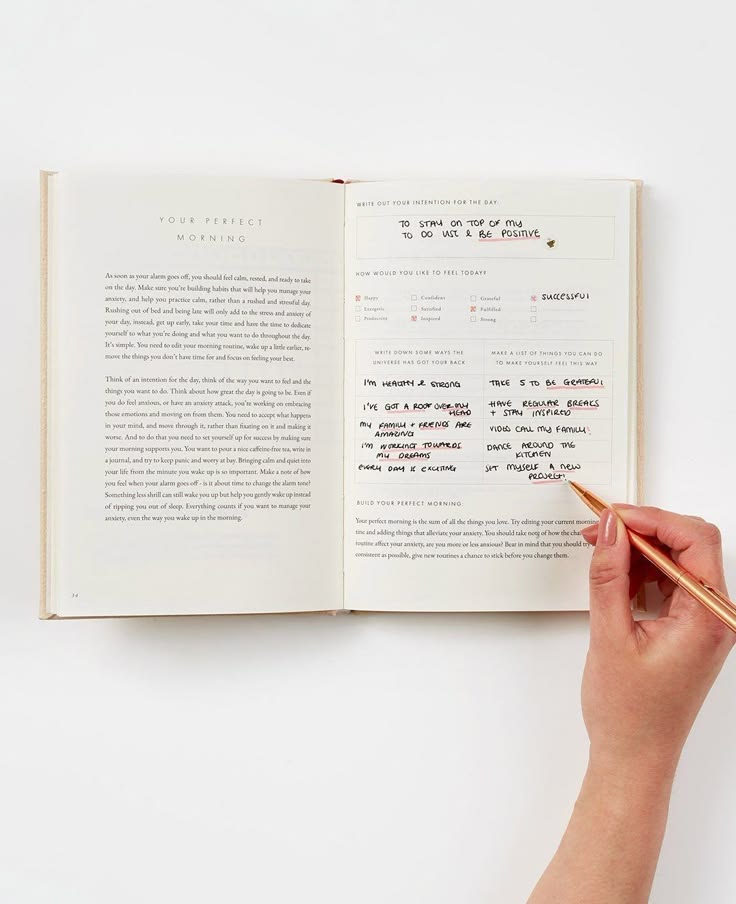 YOUR PERFECT
MORNING
As soon as your alarm goes off, you should feel calm, rested, and ready to take
on the day. Make sure you're building habits that will help you manage your
anxiety, and help you practice calm, rather than a rushed and stressful day.
Rushing out of bed and being late will only add to the stress and anxiety of
your day, instead, get up early, take your time and have the time to dedicate
yourself to what you're doing and what you want to do throughout the day.
It's simple. You need to edit your morning routine, wake up a little earlier, re-
move the things you don't have time for and focus on feeling your best.
Think of an intention for the day, think of the way you want to feel and the
things you want to do. Think about how great the day is going to be. Even if
you do feel anxious, or have an anxiety attack, you're working on embracing
those emotions and moving on from them. You need to accept what happens
in your mind, and move through it, rather than fixating on it and making it
worse. And to do that you need to set yourself up for success by making sure
your morning supports you. You want to pour a nice caffeine-free tea, write in
a journal, and try to keep panic and worry at bay. Bringing calm and quiet into
your life from the minute you wake up is so important. Make a note of how
you feel when your alarm goes off - is it about time to change the alarm tone?
Something less shrill can still wake you up but help you gently wake up instead
of ripping you out of sleep. Everything counts if you want to manage your
anxiety, even the way you wake up in the morning.
34
WRITE OUT YOUR INTENTION FOR THE DAY:
TO STAY ON TOP OF MY
TO DO LIST & BE POSITIVE
HOW WOULD YOU LIKE TO FEEL TODAY?
Happy Confident Grateful SUCCESSFUL
Energetic Satisfied Fulfilled
Productive Inspired Strong
WRITE DOWN SOME WAYS THE
UNIVERSE HAS GOT YOUR BACK
I'M HEALTHY & STRONG
I'VE GOT A ROOF OVER MY
HEAD
MY FAMILY + FRIENDS ARE
AMAZING
I'M WORKING TOWARDS
MY DREAMS
EVERY DAY IS EXCITING
MAKE A LIST OF THINGS YOU CAN DO
TO MAKE YOURSELF FEEL THIS WAY
TAKE 5 TO BE GRATEFUL
HAVE REGULAR BREAKS
+ STAY INSPIRED
VIDEO CALL MY FAMILY!
DANCE AROUND THE
KITCHEN
SET MYSELF A NEW
PROJECT!
BUILD YOUR PERFECT MORNING:
Your perfect morning is the sum of all the things you love. Try editing your current morning
time and adding things that alleviate your anxiety. You should take note of how the
routine affect your anxiety, are you more or less anxious? Bear in mind that you should
consistent as possible, give new routines a chance to stick before you change them.